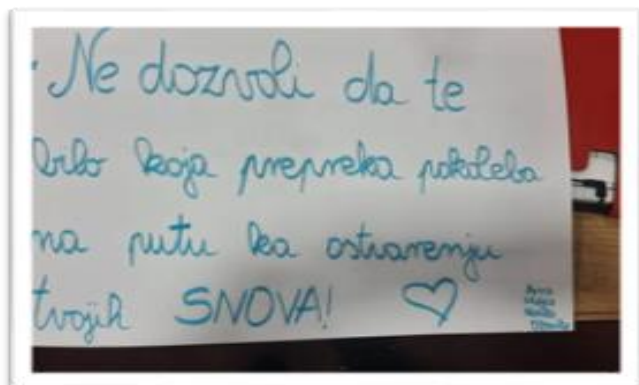 Ne dozvoli da te
bilo koja prepreka pokoleba
na putu ka ostvarenju
tvojih SNOVA! ♡